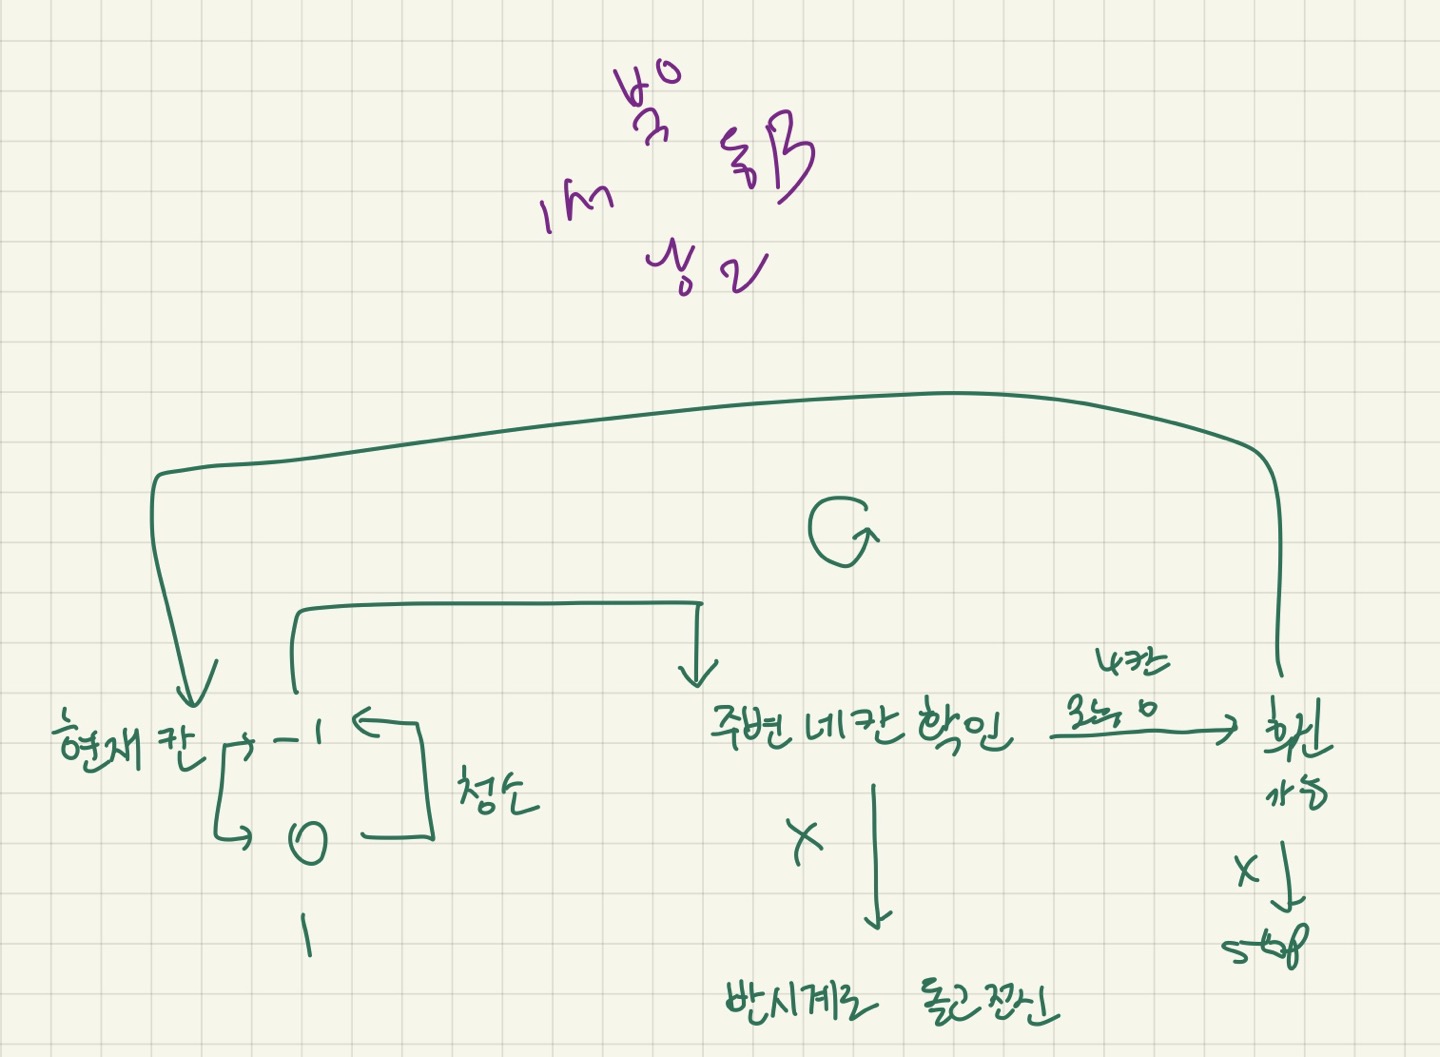 북 0
동
남 2
4칸
모두 0
현재 칸 -1
주변 네칸 확인
후진
가능
청소
0
X
X
1
stop
반시계로 돌고 전진